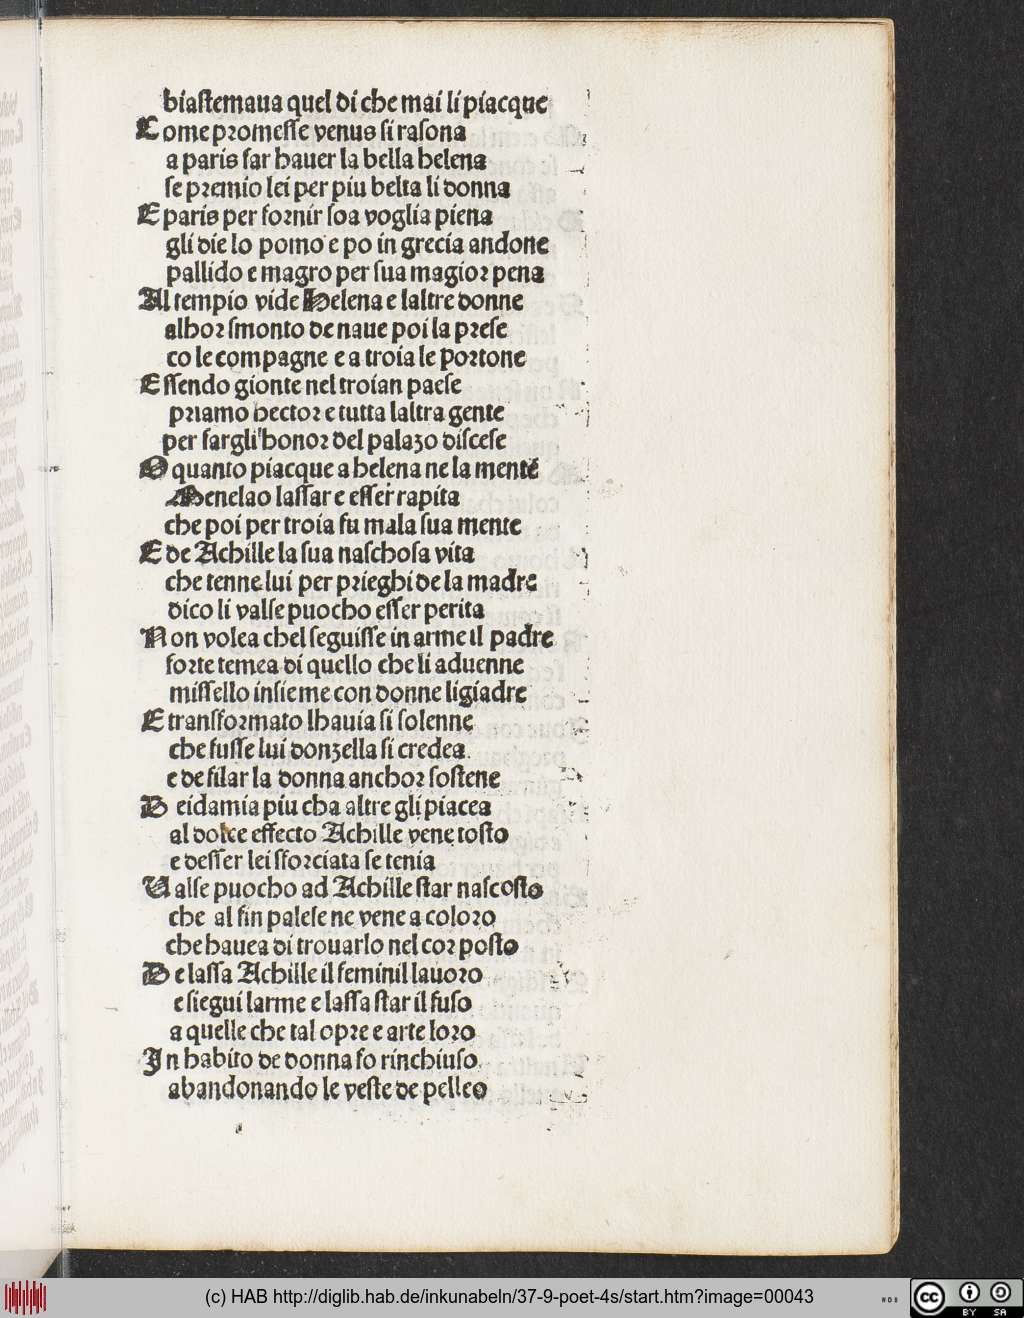 biastemaua quel di che mai li piacque
Come promesse venus si rasona
a paris far hauer la bella helena
se premio lei per piu belta li donna
E paris per fornir soa voglia piena
gli die lo pomo e po in grecia andone
pallido e magro per sua magior pena
Al tempio vide Helena e laltre donne
alhor smonto de naue poi la prese
co le compagne e a troia le portone
Essendo gionte nel troian paese
priamo hector e tutta laltra gente
per fargli honor del palazo discese
O quanto piacque a helena ne la mente
Menelao lassar e esser rapita
che poi per troia fu mala sua mente
E de Achille la sua naschosa vita
che tenne lui per prieghi de la madre
dico li valse puocho esser perita
Non volea chel seguisse in arme il padre
forte temea di quello che li aduenne
missello insieme con donne ligiadre
E transformato lhauia si solenne
che fusse lui donzella si credea
e de filar la donna anchor sostene
Deidamia piu cha altre gli piacea
al dolce effecto Achille vene tosto
e desser lei sforciata se tenia
Ualse puocho ad Achille star nascosto
che al fin palese ne vene a coloro
che hauea di trouarlo nel cor posto
De lassa Achille il feminil lauoro
e siegui larme e lassa star il fuso
a quelle che tal opre e arte loro
In habito de donna fo rinchiuso
abandonando le veste de pelleo
(c) HAB http://diglib.hab.de/inkunabeln/37-9-poet-4s/start.htm?image=00043
WDB
cc
BY SA